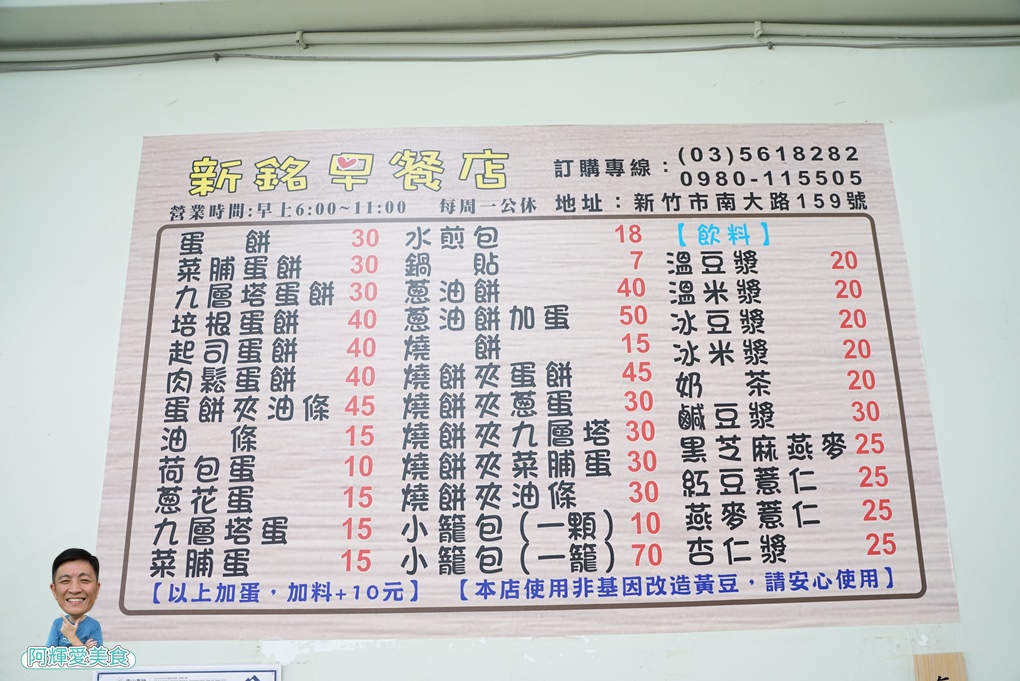 新銘早餐店
訂購專線：(03)5618282
0980-115505
營業時間:早上6:00~11:00 每周一公休 地址：新竹市南大路159號
蛋餅 30
菜脯蛋餅 30
九層塔蛋餅 30
培根蛋餅 40
起司蛋餅 40
肉鬆蛋餅 40
蛋餅夾油條 45
油條 15
荷包蛋 10
蔥花蛋 15
九層塔蛋 15
菜脯蛋 15
水煎包 18
鍋貼 7
蔥油餅 40
蔥油餅加蛋 50
燒餅 15
燒餅夾蛋餅 45
燒餅夾蔥蛋 30
燒餅夾九層塔 30
燒餅夾菜脯蛋 30
燒餅夾油條 30
小籠包(一顆) 10
小籠包(一籠) 70
【飲料】
溫豆漿 20
溫米漿 20
冰豆漿 20
冰米漿 20
奶茶 20
鹹豆漿 30
黑芝麻燕麥 25
紅豆薏仁 25
燕麥薏仁 25
杏仁漿 25
【以上加蛋，加料+10元】 【本店使用非基因改造黃豆，請安心使用】
阿輝愛美食